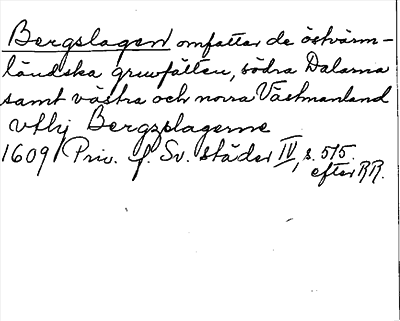 Bergslagen omfattar de östvärm-
ländska gruvfälten, södra Dalarna
samt västra och norra Västmanland
vthj Bergzlagerne
1609 Priv. f. Sv. städer IV, s. 515.
efter RR.